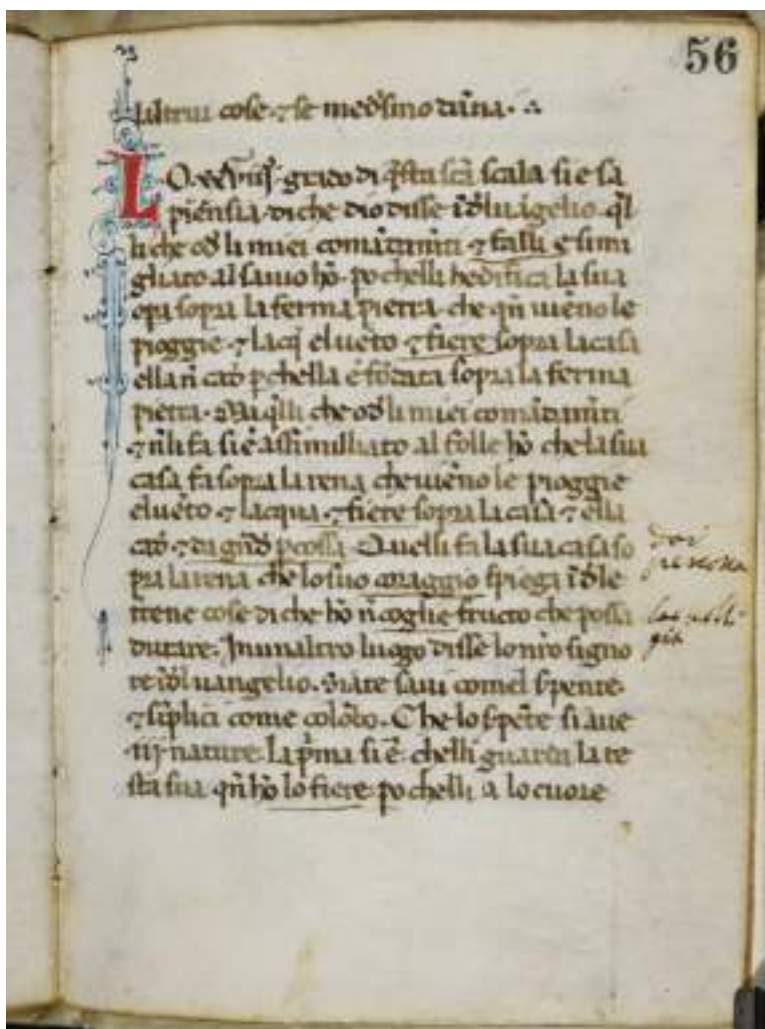 56
laltrui cose ⁊ se med̕simo dãna.
LO .xxviij. grado di q̃sta scã scala si e sa
piẽnsia di che dio disse ĩd̕lu ãgelio q̃l
li che od̕ li miei comãdamẽti ⁊ falli e simi
gliato al sauio hõ. po chelli hedifica la sua
opa sopra la ferma pietra che qñ uiẽno le
pioggie ⁊ lacq̃ eluẽto ⁊ fiere sopra la casa
ella ñ cad̕ p chella e fõdata sopra la ferma
pietra. Ma q̃lli che od̕ li miei comãdamẽti
⁊ ñ li fa si e assimilliato al folle hõ che la sua
casa fa sopra la rena che uiẽno le pioggie
eluẽto ⁊ lacqua ⁊ fiere sopra la casa ⁊ ella
cad̕ ⁊ da gñd̕ pcossa. Quelli fa la sua casa so
pra la rena che lo suo coraggio spiega ĩd̕le
trene cose di che hõ ñ coglie fructo che possa
durare. In unaltro luogo disse lo nr̃o signo
re ĩd̕lu angelio. Siate saui comel s̕pente
⁊ sĩplici come colõbo. Che lo s̕pẽte si aue
.iij. nature. la p̃ma si e chelli guarda la te
sta sua qñ hõ lo fiere po chelli a lo cuore